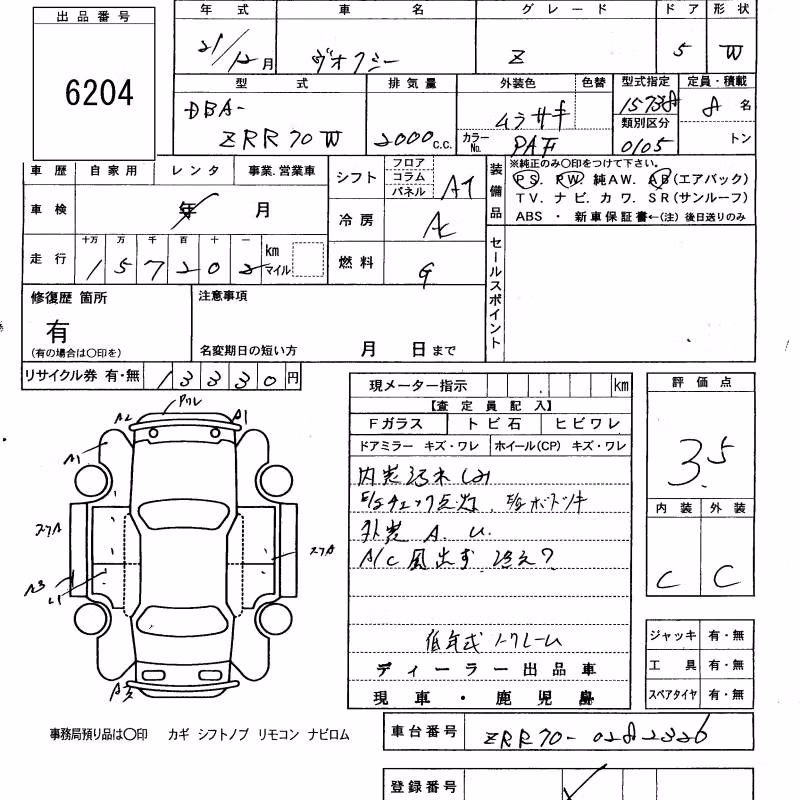 出品番号
6204
年式 車名 グレード ドア 形状
21/12月 ヴォクシー Z 5 W
型式 排気量 外装色 色替 型式指定 定員・積載
DBA- ムラサキ 15738 8名
ZRR70W 2000 c.c. カラーNo. 類別区分
0105 トン
車歴 自家用 レンタ 事業.営業車
シフト フロア コラム パネル AT
車検 年 月
冷房 AC
走行 十万 万 千 百 十 一
157202 km マイル
燃料 G
装備品 ※純正のみ〇印をつけて下さい。
PS. PW. 純AW. AB(エアバック)
TV. ナビ. カワ. SR(サンルーフ)
ABS ・ 新車保証書←(注) 後日送りのみ
セールスポイント
修復歴 箇所
有
(有の場合は〇印を)
注意事項
名変期日の短い方 月 日まで
リサイクル券 有・無 13330円
現メーター指示 km
【査定員記入】
Fガラス トビ石 ヒビワレ
ドアミラー キズ・ワレ ホイール(CP) キズ・ワレ
内装汚れ シミ
E/gチェック点灯.
外装 A. U.
A/C 風出ず 冷え?
低年式 ノークレーム
ディーラー出品車
現車・鹿児島
評価点
3.5
内装 外装
C C
ジャッキ 有・無
工具 有・無
スペアタイヤ 有・無
A2 ワレ A1
A1
スアA
スアA
A3
事務局預り品は〇印 カギ シフトノブ リモコン ナビロム
車台番号 ZRR70-0282326
登録番号